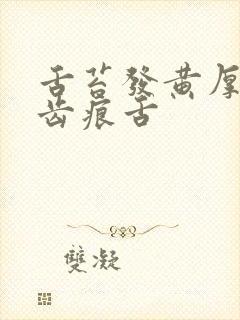 舌苔發黄厚
齿痕舌
雙凝